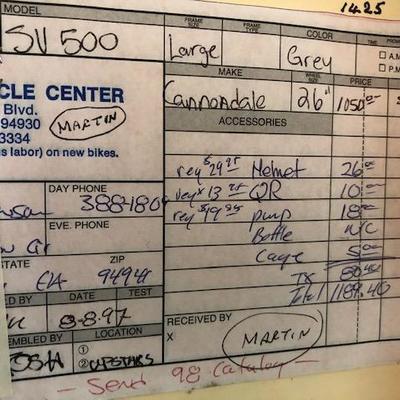 1425
MODEL FRAME SIZE FRAME TYPE COLOR TIME
SV 500 Large Grey A.M.
P.M.
MAKE WHEEL SIZE PRICE
Cannondale 26" 1050.00
CLE CENTER
Blvd.
94930 MARTIN
3334
s labor) on new bikes.
ACCESSORIES
reg $29.95 Helmet 26.00
reg $13.25 QR 10.00
reg $19.95 pump 18.00
Bottle N/C
Cage 5.00
Tx 80.40
Total 1189.40
DAY PHONE
388-180
EVE. PHONE
STATE ZIP
CA 9494
D BY DATE TEST
8-8-97
EMBLED BY LOCATION
OSH ①
② UPSTAIRS
RECEIVED BY
X MARTIN
- Send 98 Catalog -